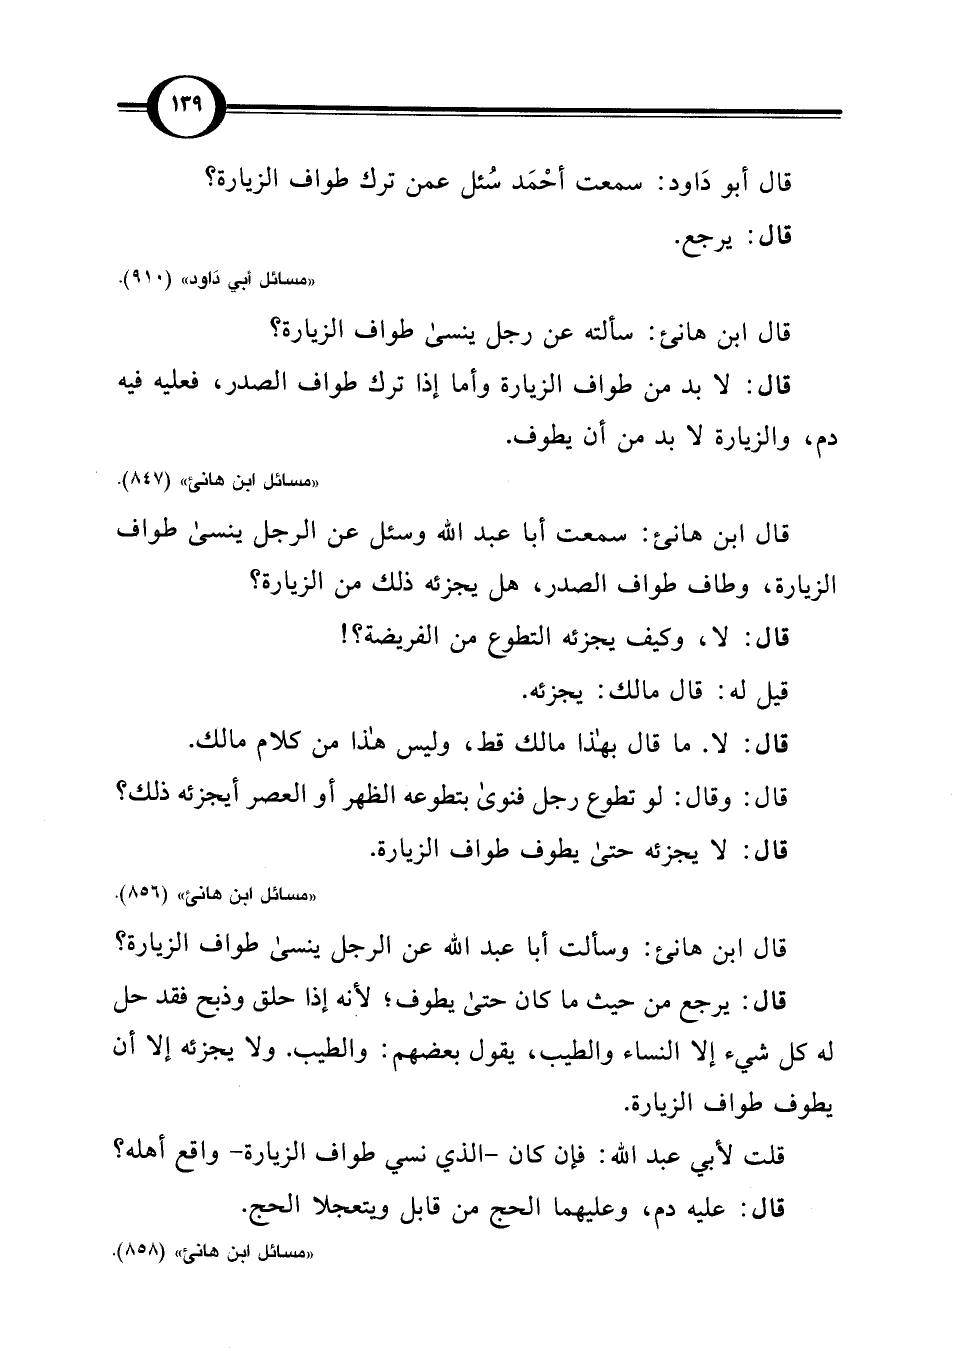 ١٣٩
قال أبو دَاود: سمعت أحْمَد سُئل عمن ترك طواف الزيارة؟
قال: يرجع.
«مسائل أبي دَاود» (٩١٠).
قال ابن هانئ: سألته عن رجل ينسىٰ طواف الزيارة؟
قال: لا بد من طواف الزيارة وأما إذا ترك طواف الصدر، فعليه فيه
دم، والزيارة لا بد من أن يطوف.
«مسائل ابن هانئ» (٨٤٧).
قال ابن هانئ: سمعت أبا عبد الله وسئل عن الرجل ينسىٰ طواف
الزيارة، وطاف طواف الصدر، هل يجزئه ذلك من الزيارة؟
قال: لا، وكيف يجزئه التطوع من الفريضة؟!
قيل له: قال مالك: يجزئه.
قال: لا. ما قال بهٰذا مالك قط، وليس هٰذا من كلام مالك.
قال: وقال: لو تطوع رجل فنوىٰ بتطوعه الظهر أو العصر أيجزئه ذلك؟
قال: لا يجزئه حتىٰ يطوف طواف الزيارة.
«مسائل ابن هانئ» (٨٥٦).
قال ابن هانئ: وسألت أبا عبد الله عن الرجل ينسىٰ طواف الزيارة؟
قال: يرجع من حيث ما كان حتىٰ يطوف؛ لأنه إذا حلق وذبح فقد حل
له كل شيء إلا النساء والطيب، يقول بعضهم: والطيب. ولا يجزئه إلا أن
يطوف طواف الزيارة.
قلت لأبي عبد الله: فإن كان -الذي نسي طواف الزيارة- واقع أهله؟
قال: عليه دم، وعليهما الحج من قابل ويتعجلا الحج.
«مسائل ابن هانئ» (٨٥٨).